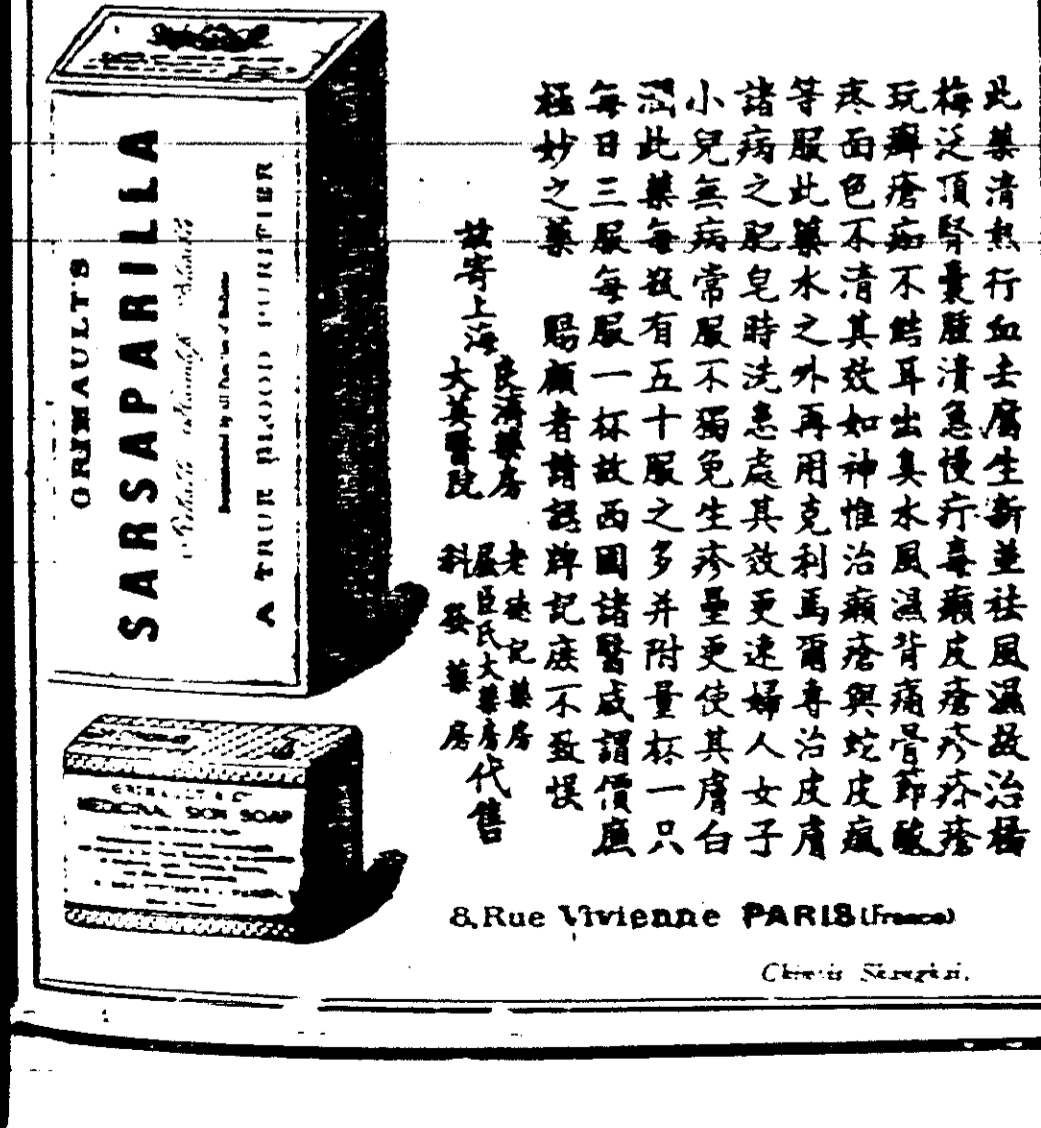 GRIMAULT'S
SARSAPARILLA
A TRUE BLOOD PURIFIER
GRIMAULT & Co
MEDICINAL SKIN SOAP
此藥清熱行血去腐生新並祛風濕故治楊
梅泛頂腎囊腫潰急慢疔毒癩皮瘡疹疥瘡
玩癬瘡痂不結耳出臭水風濕背痛骨節酸
疼面色不清其效如神惟治癩瘡與蛇皮瘋
等服此藥水之外再用克利馬爾專治皮膚
諸病之肥皂時洗患處其效更速婦人女子
小兒無病常服不獨免生疹壘更使其膚白
潤此藥每瓶有五十服之多并附量杯一只
每日三服每服一杯故西國諸醫咸謂價廉
極妙之藥 賜顧者請認牌記庶不致悞
茲寄上海
良濟藥房
大英醫院
老德記藥房
屈臣氏大藥房
科發藥房
代售
8, Rue Vivienne PARIS (France)